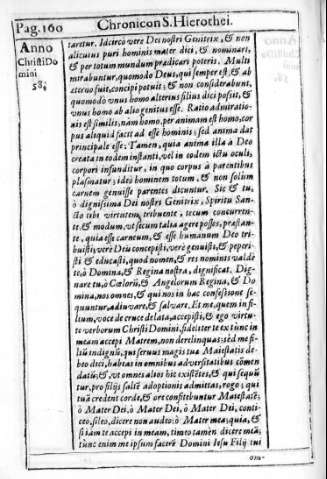 Pag.160
Chronicon S. Hierothei.
Anno
Christi Do
mini
58;
taretur. Idcircò vere Dei nostri Genitrix, & non
alicuius puri hominis mater dici, & nominari,
& per totum mundum prædicari poteris. Multi
mirabuntur, quomodo Deus, qui semper est, & ab
æterno fuit, concipi potuit; & non considerabunt,
quomodò vnus homo alterius filius dici possit, &
vnus homo ab alio genitus esse. Ratio admiratio-
nis est similis; nàm homo, per animam est homo, cor
pus aliquid facit ad esse hominis; sed anima dat
principale esse; Tamen, quia anima illa à Deo
creata in eodem instanti, vel in eodem ictu oculi,
corpori infunditur, in quo corpus à parentibus
plasmatur; ideò hominem totum, & non solùm
carnem genuisse parentes dicuntur. Sic & tu,
ò dignissima Dei nostri Genitrix, Spiritu San-
cto tibi virtutem tribuente, tecum concurren-
te, & modum, vt fecum talia agere posses, præstan-
te, quia esse carneum, & esse humanum Deo tri-
buisti; verè Deũ concepisti, verè genuisti, & peperi-
sti & educasti, quod nomen, & res nominis valdè
te, ò Domina, & Regina nostra, dignificat. Dig-
nare tu, ò Cœlorũ, & Angelorum Regina, & Do
mina, nos omnes, & qui nos in hac confessione se-
quuntur, adiuvare, & salvare. Et me, quem in fi-
lium, voce de cruce delata, accepisti, & ego virtu-
te verborum Christi Domini, fideliter te ex tunc in
meam accepi Matrem, non derelinquas: sed me fi-
liũ indignũ, qui servus magis tua Maiestatis de-
beo dici, habeas in omnibus adversitatibus cõmen
datũ; &, vt omnes alios hic existẽtes, & qui sequũ
tur, pro filijs salte adoptionis admittas, rogo; qui
tuã credent corde, & ore confitebuntur Maiestatẽ;
ò Mater Dei, ò Mater Dei, ò Mater Dei, conti-
ceo, sileo, dicere non audeo: ò Mater mea; quia, &
si iàm te accepi in meam, timeo tamèn dicere meã;
tùnc enim me ipsum facerẽ Domini Iesu Filij tui